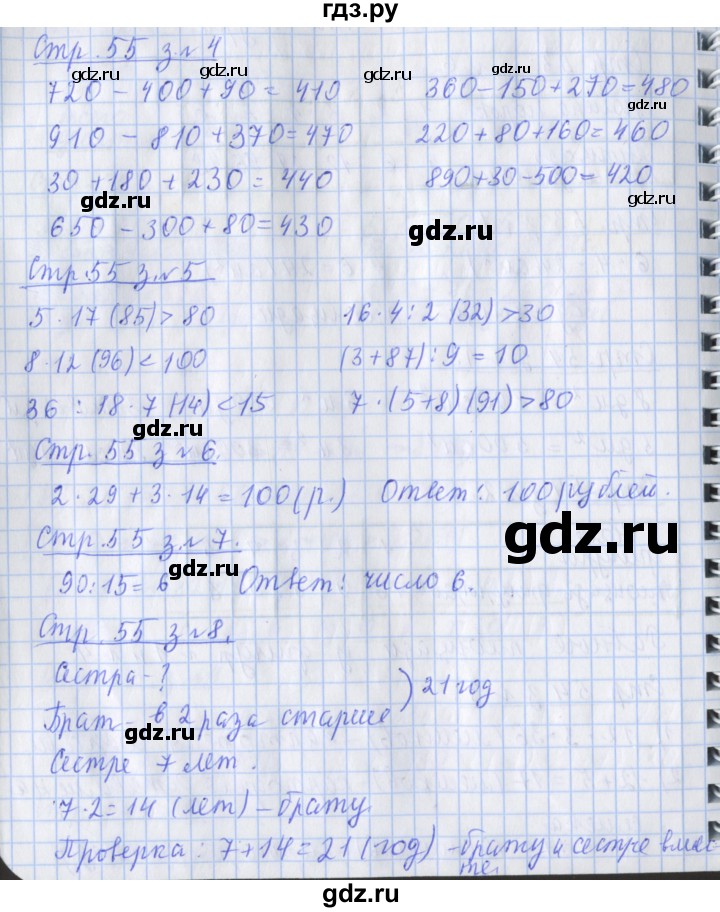 гдз.ру
Стр. 55 з. № 4
720 - 400 + 90 = 410    360 - 150 + 270 = 480
910 - 810 + 370 = 470    220 + 80 + 160 = 460
30 + 180 + 230 = 440    890 + 30 - 500 = 420
650 - 300 + 80 = 430
Стр. 55 з. № 5
5 · 17 (85) > 80    16 · 4 : 2 (32) > 30
8 · 12 (96) < 100    (3 + 87) : 9 = 10
36 : 18 · 7 (14) < 15    7 · (5 + 8) (91) > 80
Стр. 55 з № 6.
2 · 29 + 3 · 14 = 100 (р.)    Ответ: 100 рублей.
Стр. 55 з. № 7.
90 : 15 = 6    Ответ: число 6.
Стр. 55 з № 8.
Сестра - ?
) 21 год
Брат - в 2 раза старше
Сестре 7 лет.
7 · 2 = 14 (лет) - брату
Проверка: 7 + 14 = 21 (год) - брату и сестре вмес-
те.
gdz.ru
gdz.ru
gdz.ru
gdz.ru
gdz.ru
gdz.ru
gdz.ru
gdz.ru
gdz.ru
gdz.ru
gdz.ru
gdz.ru
gdz.ru
gdz.ru